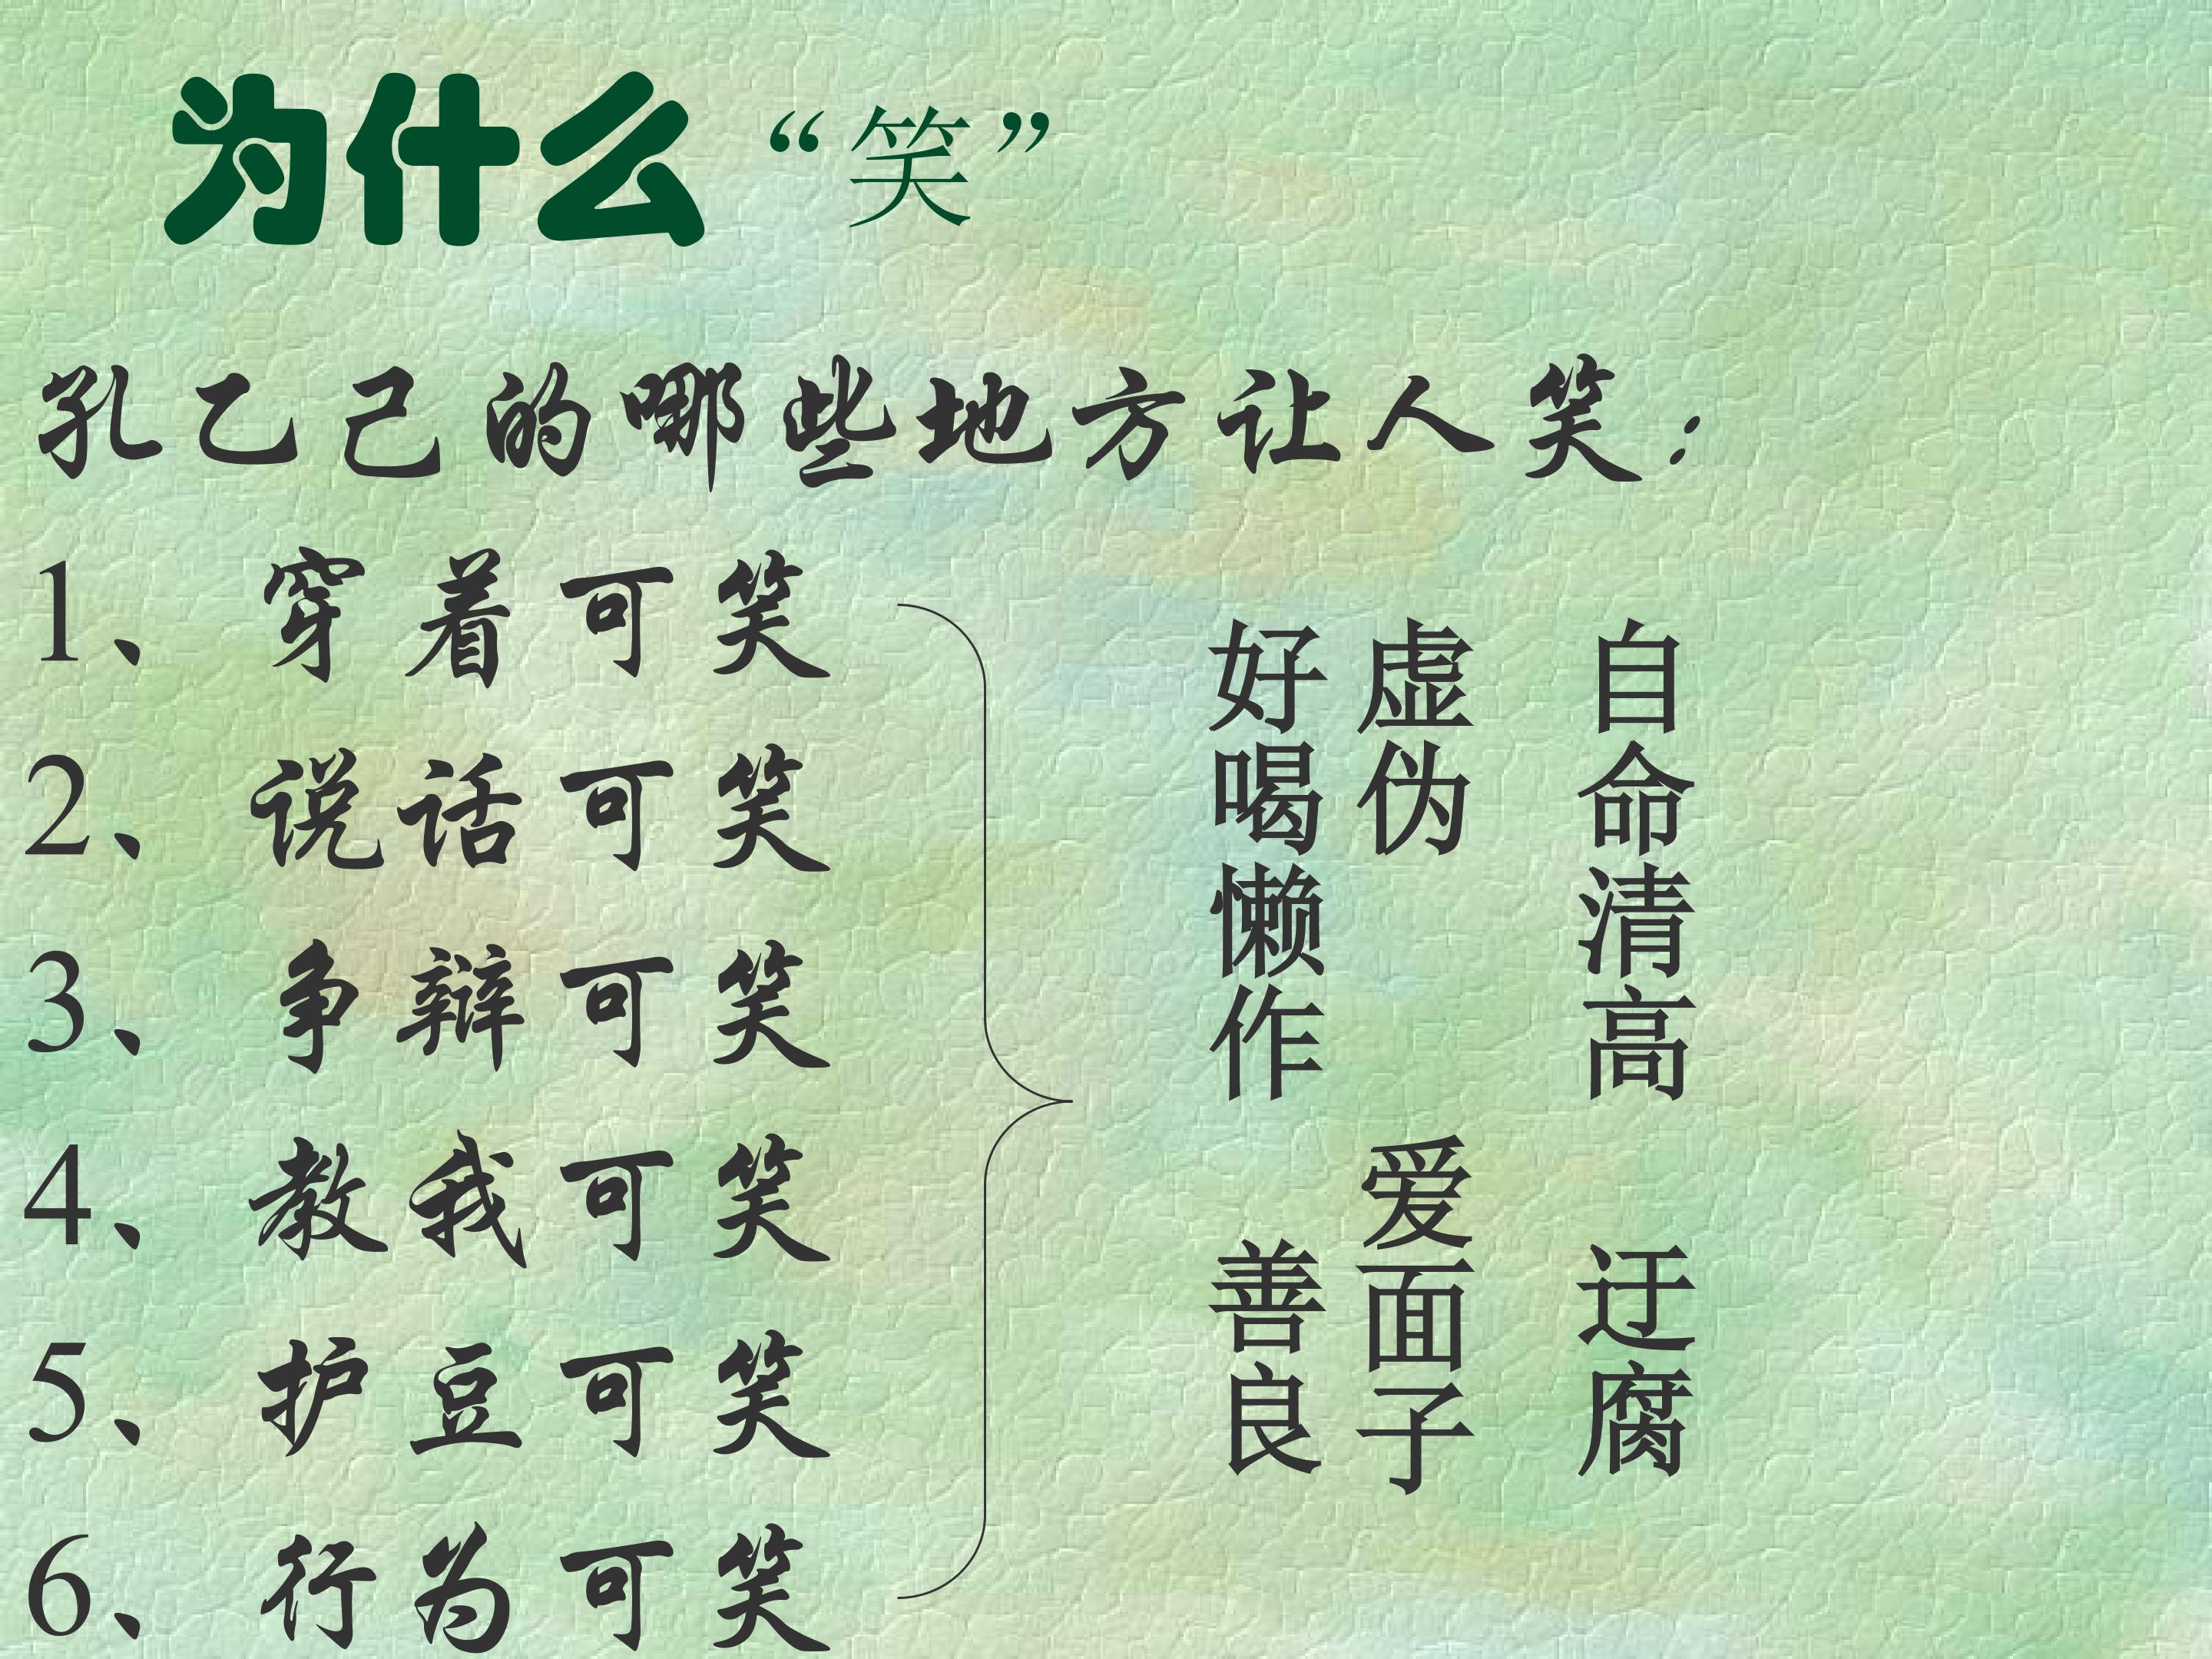 为什么“笑”
孔乙己的哪些地方让人笑：
1、穿着可笑
2、说话可笑
3、争辩可笑
4、教我可笑
5、护豆可笑
6、行为可笑
好喝懒作
虚伪
自命清高
善良
爱面子
迂腐